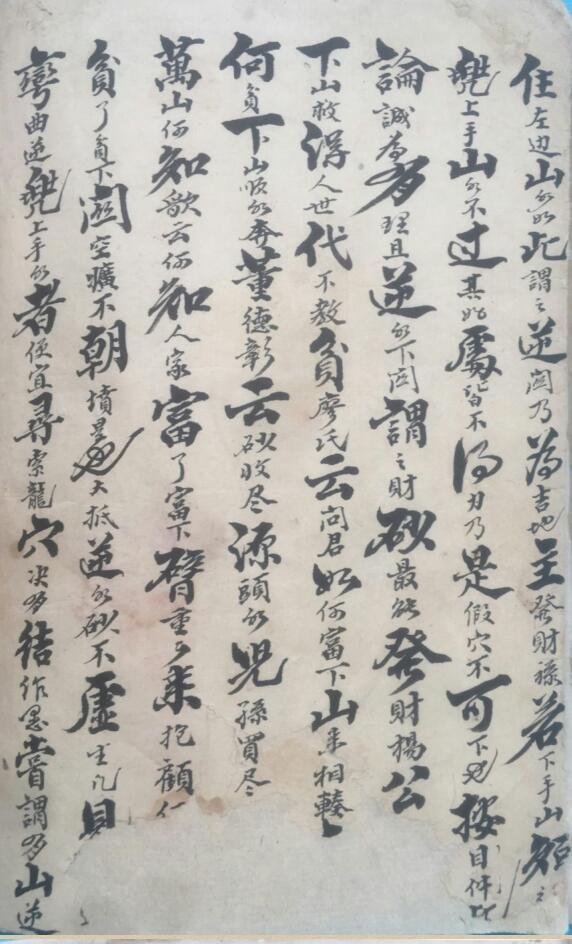 住左边山水所此謂之逆関乃為吉地主發財祿若下手山短之
兠上手山水不过其始處皆不得力乃是假穴不可下也按目佧此
論誠為多理且逆水下関謂之財砂最能發財楊公
下山救得人世代不教貧廖氏云问君如何富下山来相輳
何貧下山順水奔董德彰云砂收尽源頭水児孫買尽
萬山何知歌云何知人家富了富下臂重重来抱顧何
貧了貧下関空曠不朝墳是也大抵逆水砂不虚坐凡見
彎曲逆兠上手水者便宜尋索龍穴决多結作愚嘗謂多山逆